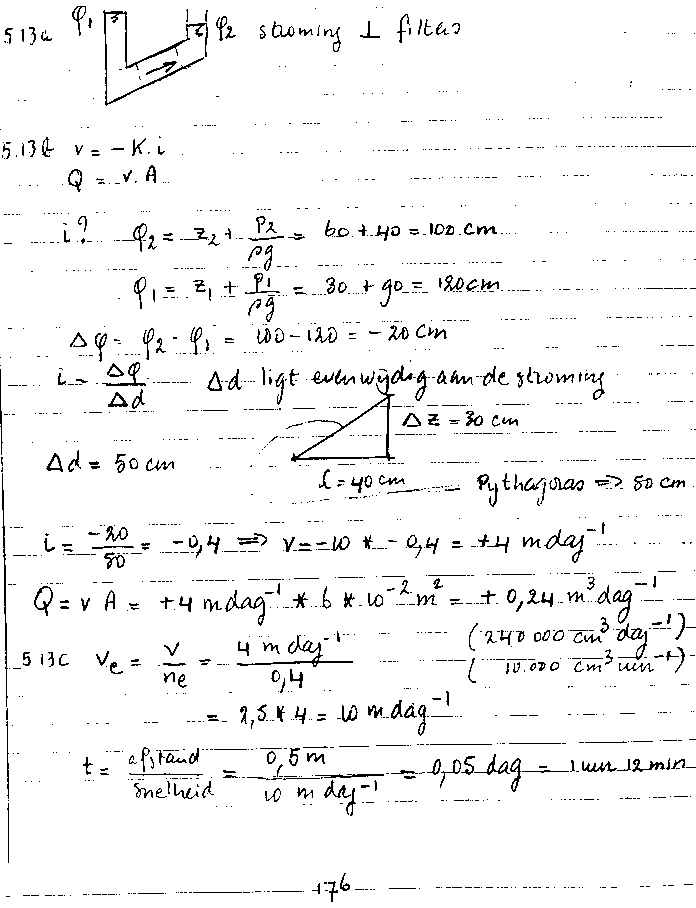 5.13a φ₁ φ₂ stroming ⊥ filters
5.13b v = -K.i
Q = v.A
i? φ₂ = z₂ + p₂/ρg = 60 + 40 = 100 cm
φ₁ = z₁ + p₁/ρg = 30 + 90 = 120 cm
Δφ = φ₂ - φ₁ = 100 - 120 = -20 cm
i = Δφ/Δd Δd ligt evenwijdig aan de stroming
Δz = 30 cm
Δd = 50 cm
l = 40 cm Pythagoras => 50 cm
i = -20/50 = -0,4 => v = -10 * -0,4 = +4 m dag⁻¹
Q = v A = +4 m dag⁻¹ * 6 * 10⁻² m² = +0,24 m³ dag⁻¹
(240 000 cm³ dag⁻¹)
5.13c vₑ = v/nₑ = 4 m dag⁻¹/0,4 (10.000 cm³ uur⁻¹)
= 2,5 * 4 = 10 m dag⁻¹
t = afstand/snelheid = 0,5 m/10 m dag⁻¹ = 0,05 dag = 1 uur 12 min
176